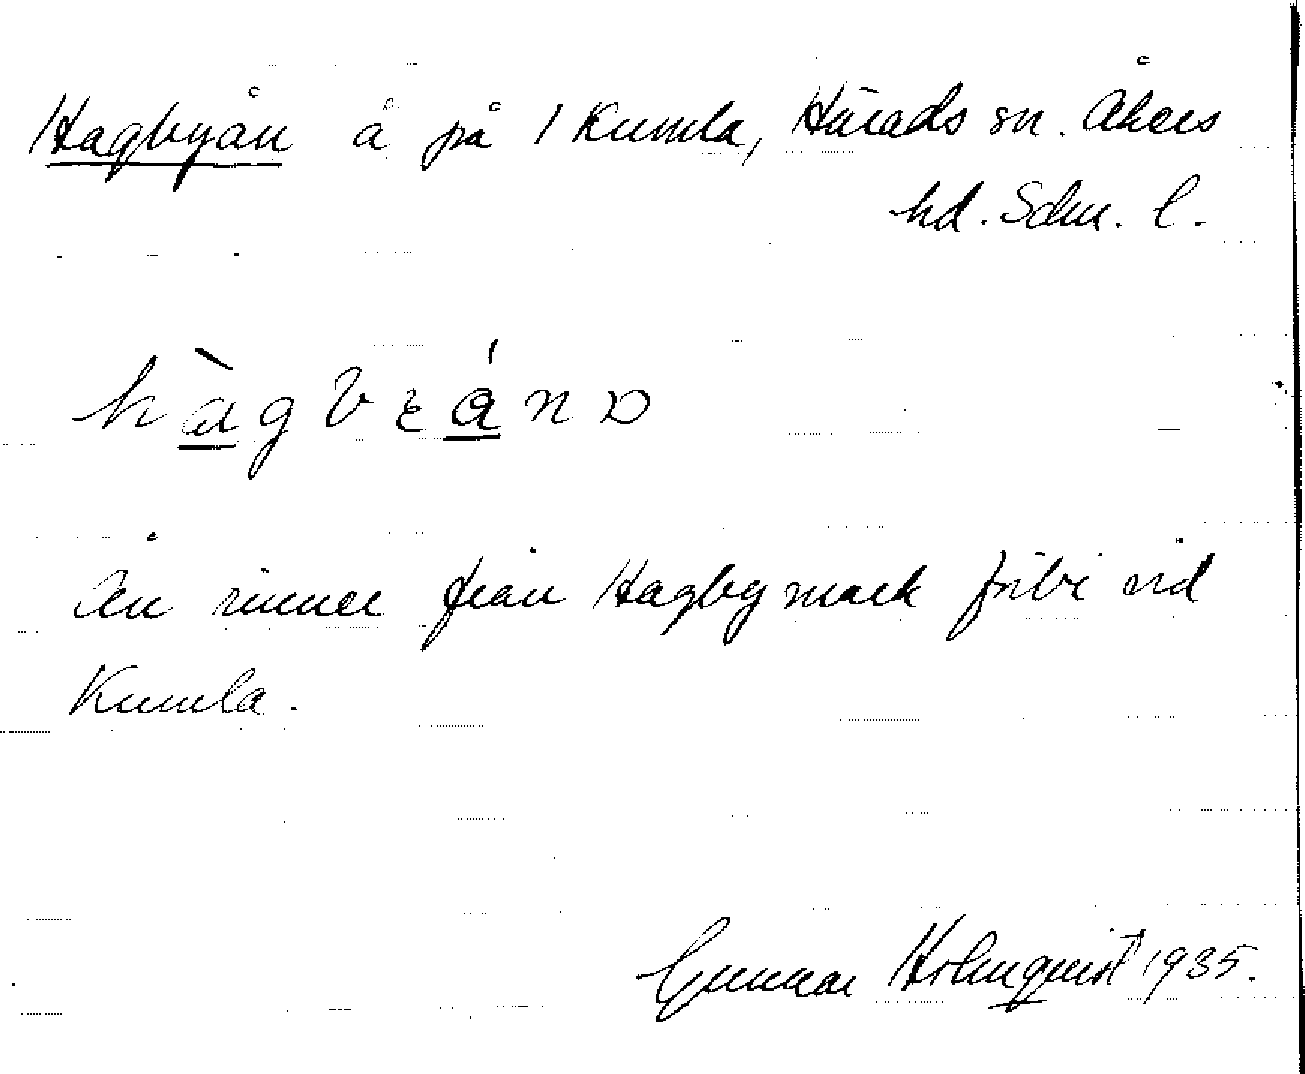 Hagbyån å på 1 Kumla, Härads sn. Åkers
hd. Sdm. l.
Ån rinner från Hagby mark förbi vid
Kumla.
Gunnar Holmquist 1935.